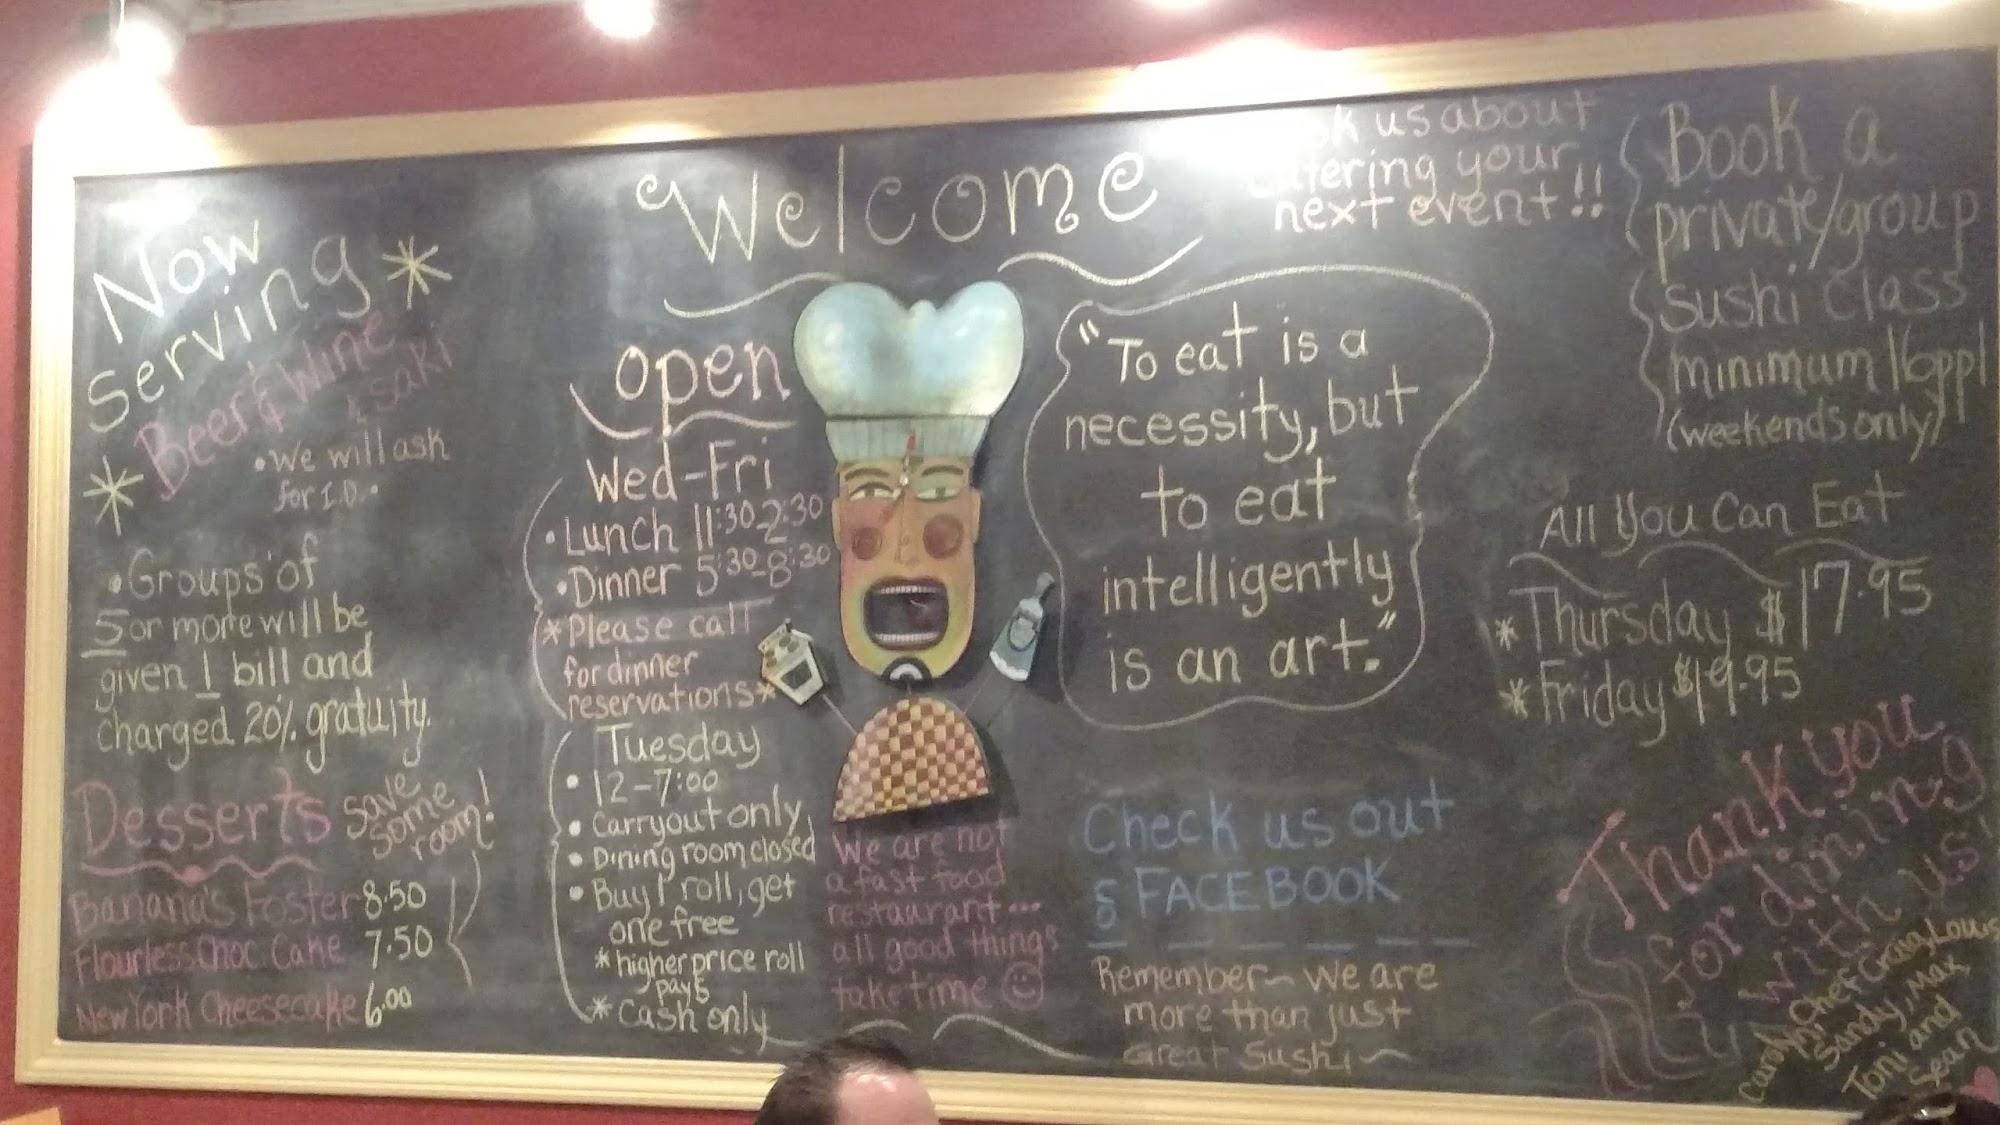 Welcome
Now
Serving
Beer & Wine
& saki
• We will ask
for I.D. •
• Groups of
5 or more will be
given 1 bill and
charged 20% gratuity.
Desserts
save
some
room!
Banana's Foster 8.50
Flourless Choc. Cake 7.50
New York Cheesecake 6.00
open
Wed-Fri
• Lunch 11:30-2:30
• Dinner 5:30-8:30
*Please call
for dinner
reservations*
Tuesday
• 12-7:00
• Carryout only
• Dining room closed
• Buy 1 roll, get
one free
*higher price roll
pays
* Cash only
We are not
a fast food
restaurant...
all good things
take time
"To eat is a
necessity, but
to eat
intelligently
is an art."
Check us out
FACEBOOK
Remember~ We are
more than just
Great Sushi~
us about
catering your
next event!!
Book a
private/group
sushi class
minimum 16ppl
(weekends only)
All You Can Eat
* Thursday $17.95
* Friday $19.95
Thank you
for dining
with us!
Chef Craig, Louis
Sandy, Max,
Toni and
Sean